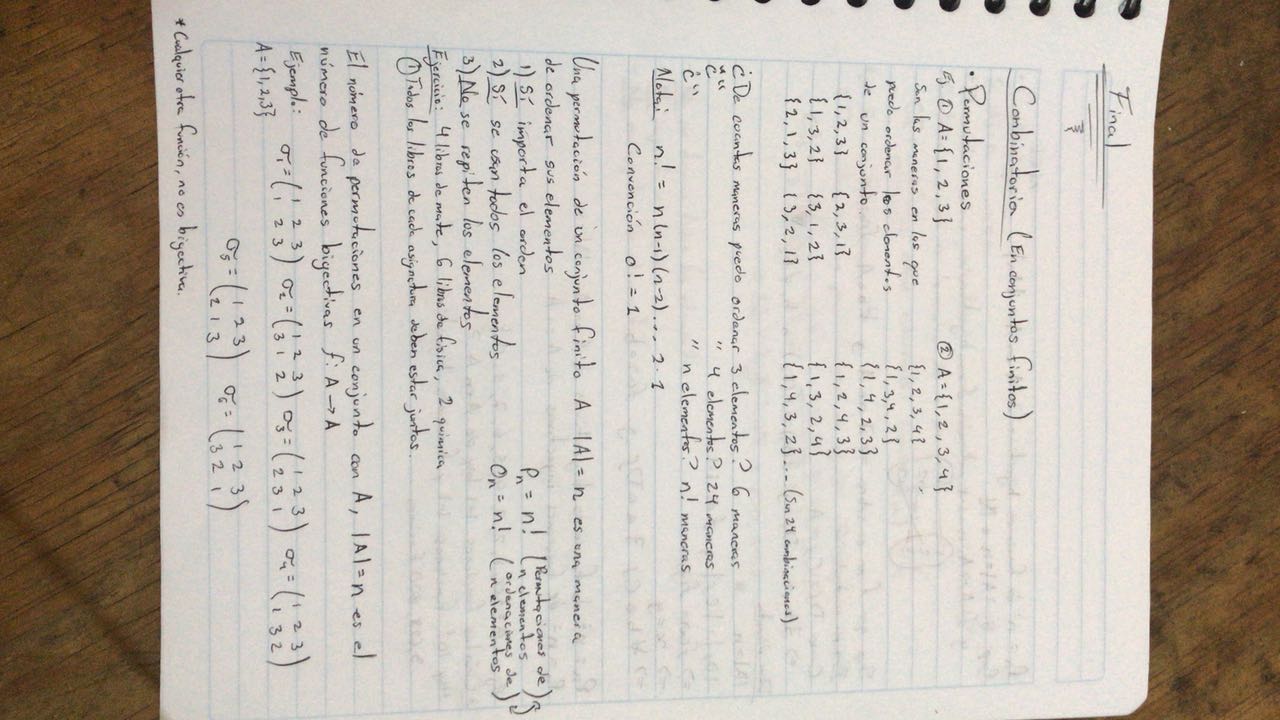 Final
Combinatoria (En conjuntos finitos)
• Permutaciones
Ej ① A={1, 2, 3}
Son las maneras en las que
puedo ordenar los elementos
de un conjunto.
{1,2,3} {2,3,1}
{1,3,2} {3,1,2}
{2,1,3} {3,2,1}
② A={1,2,3,4}
{1,2,3,4}
{1,3,4,2}
{1,4,2,3}
{1,2,4,3}
{1,3,2,4}
{1,4,3,2}... (Son 24 combinaciones)
¿De cuantas maneras puedo ordenar 3 elementos? 6 maneras
¿ " " 4 elementos? 24 maneras
¿ " " n elementos? n! maneras
Nota: n! = n(n-1)(n-2)... 2·1
Convención 0! = 1
Una permutación de un conjunto finito A |A|=n es una manera
de ordenar sus elementos
1) Sí importa el orden
2) Sí se usan todos los elementos
3) No se repiten los elementos
Pn = n! (Permutaciones de n elementos)
On = n! (ordenaciones de n elementos)
Ejercicio: 4 libros de mate, 6 libros de física, 2 quimica
① Todos los libros de cada asignatura deben estar juntos.
El número de permutaciones en un conjunto con A, |A|=n es el
número de funciones bigectivas f: A→A
Ejemplo: σ1=(1 2 3 / 1 2 3) σ2=(1 2 3 / 3 1 2) σ3=(1 2 3 / 2 3 1) σ4=(1 2 3 / 1 3 2)
A={1,2,3}
σ5=(1 2 3 / 2 1 3) σ6=(1 2 3 / 3 2 1)
* Cualquier otra función, no es bigectiva.